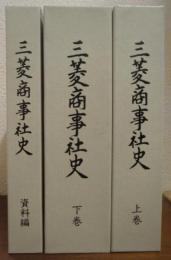 三菱商事社史 上巻
三菱商事社史 下巻
三菱商事社史 資料編